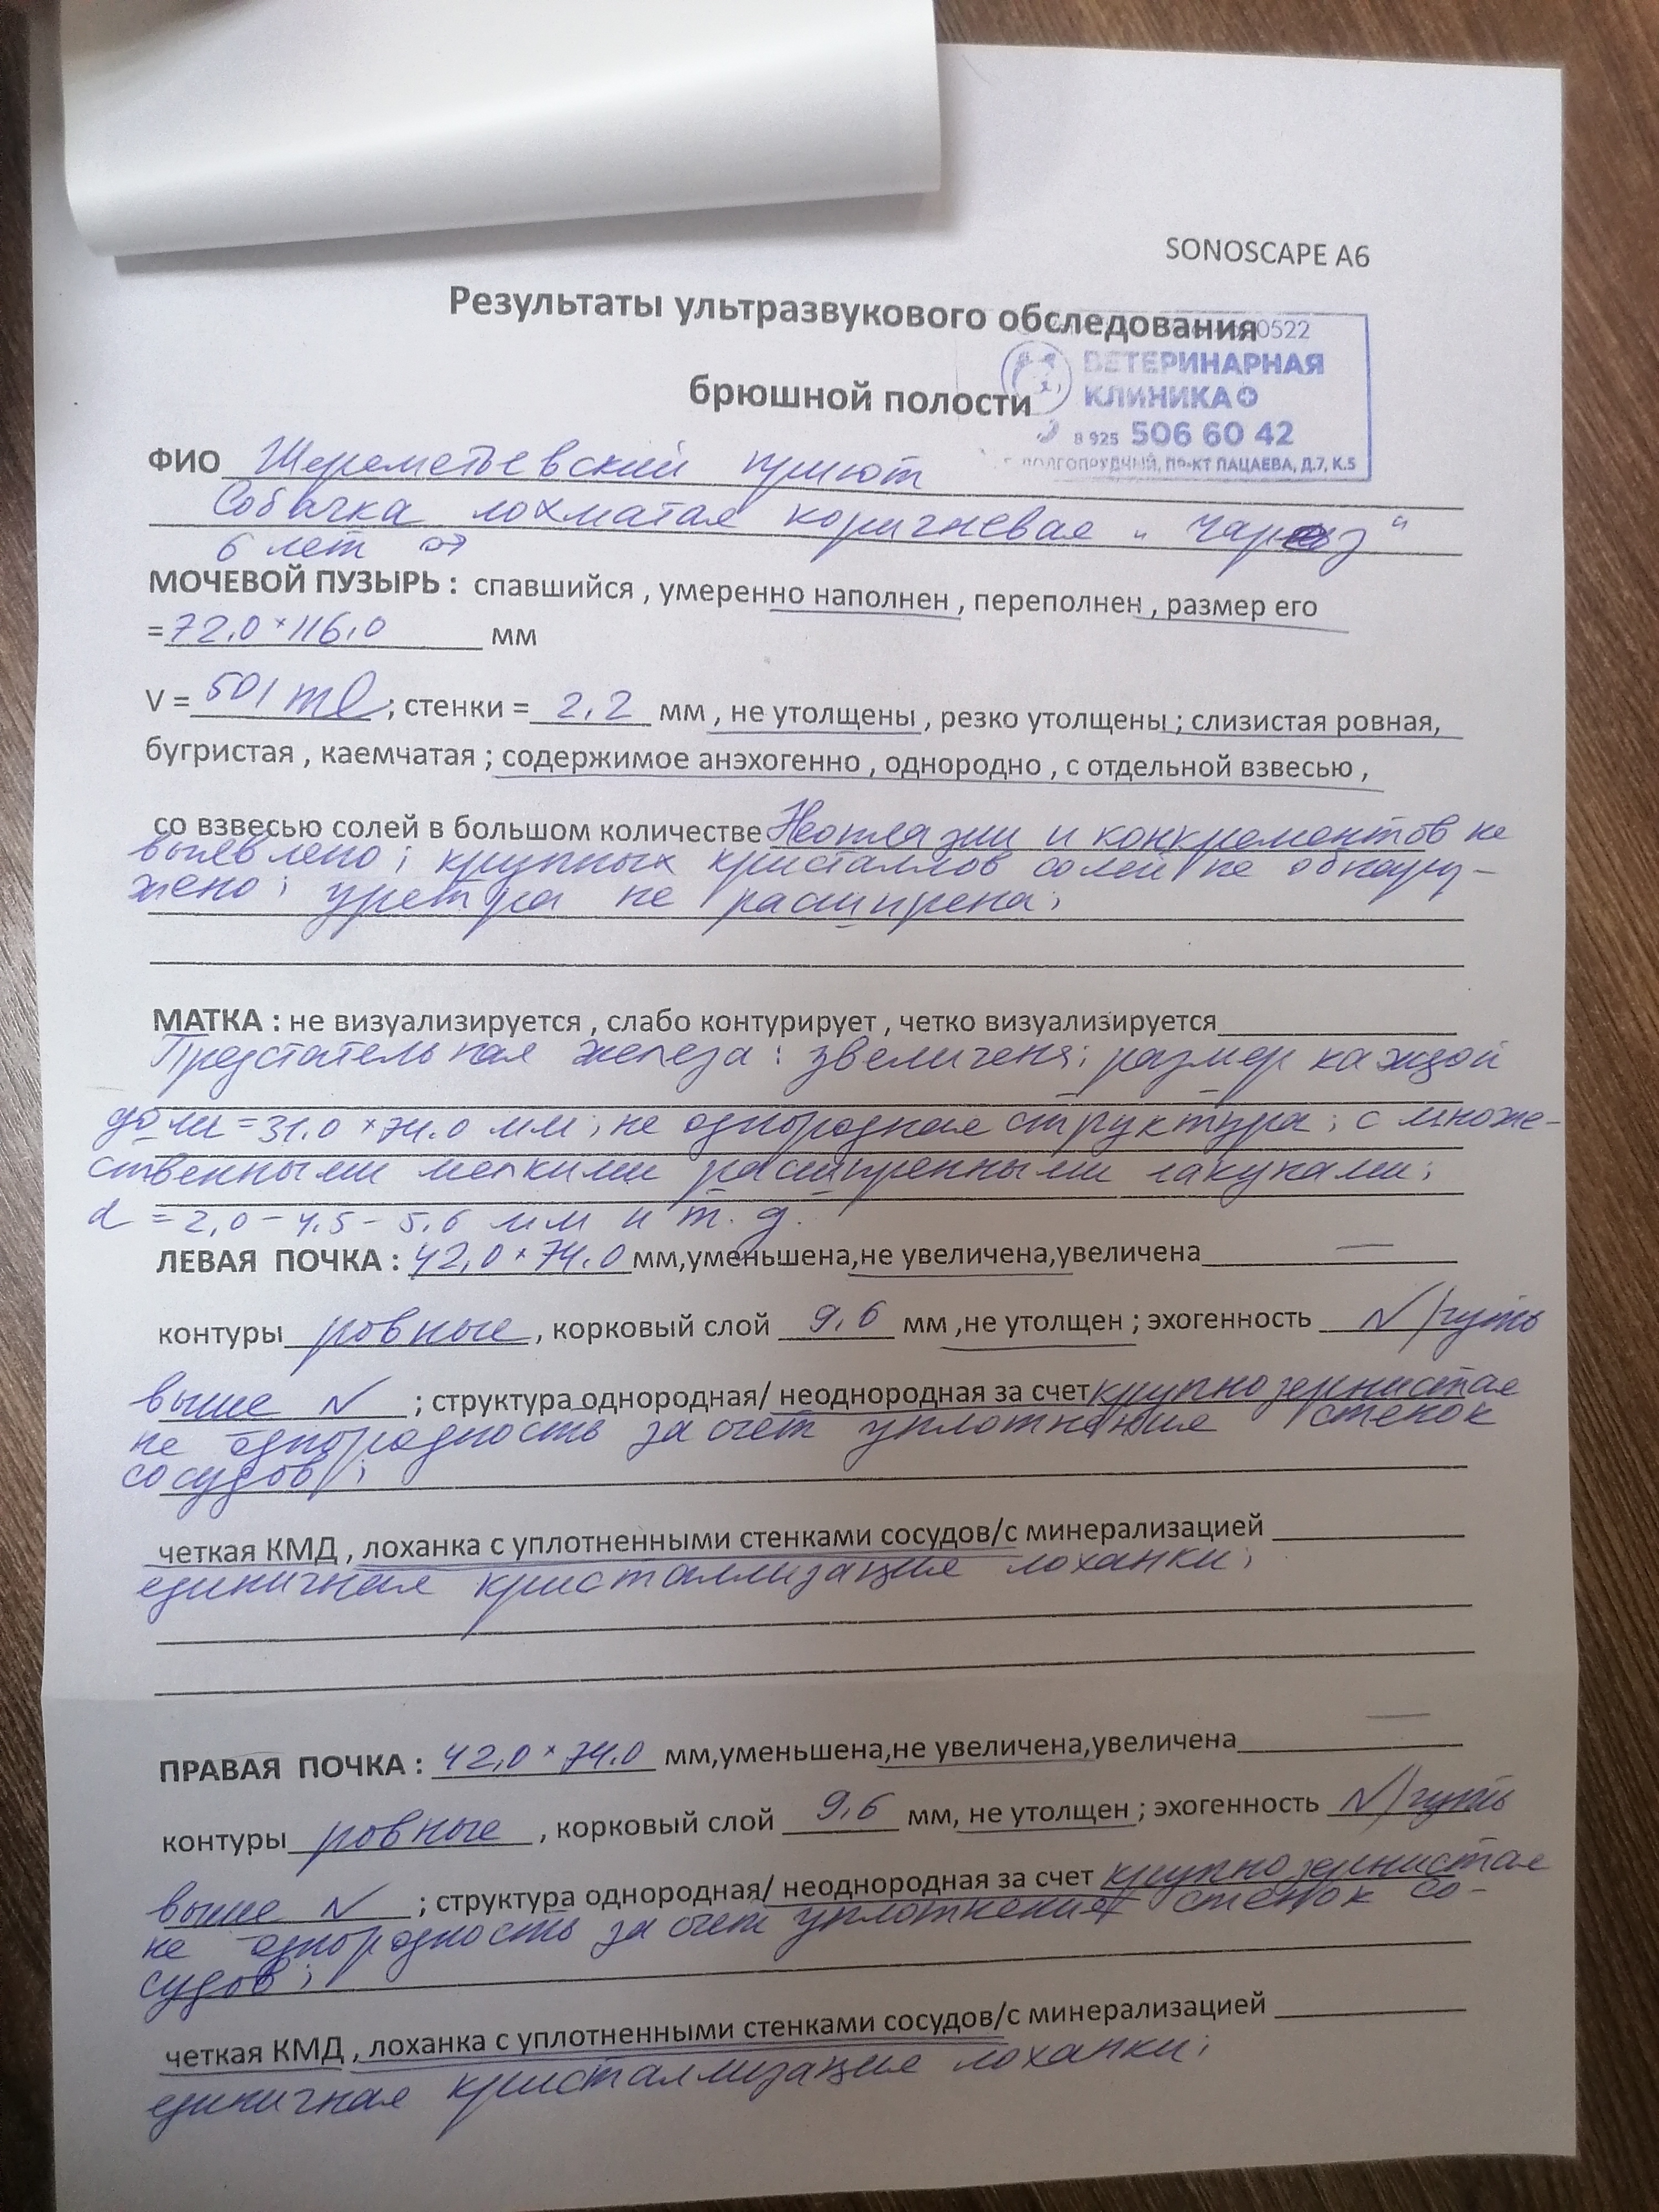 SONOSCAPE A6
Результаты ультразвукового обследования
0522
брюшной полости
ВЕТЕРИНАРНАЯ
КЛИНИКА
8 925 506 60 42
Г. ДОЛГОПРУДНЫЙ, ПР-КТ ПАЦАЕВА, Д.7, К.5
ФИО Шереметьевский приют
Собачка лохматая коричневая "
6 лет
МОЧЕВОЙ ПУЗЫРЬ : спавшийся , умеренно наполнен , переполнен , размер его
=72,0 × 116,0 мм
V = 501 ml ; стенки = 2,2 мм , не утолщены , резко утолщены ; слизистая ровная,
бугристая , каемчатая ; содержимое анэхогенно , однородно , с отдельной взвесью ,
со взвесью солей в большом количестве Неоплазии и конкрементов не
выявлено; крупных кристаллов солей не обнару-
жено; уретра не расширена;
МАТКА : не визуализируется , слабо контурирует , четко визуализируется
Предстательная железа : увеличена; размер каждой
доли = 31.0 × 74.0 мм; не однородная структура; с множе-
ственными мелкими расширенными лакунами;
d = 2,0 - 4,5 - 5,6 мм и т.д.
ЛЕВАЯ ПОЧКА : 42,0 × 74.0 мм,уменьшена,не увеличена,увеличена —
контуры ровные , корковый слой 9,6 мм ,не утолщен ; эхогенность N/чуть
выше N ; структура однородная/ неоднородная за счет крупнозернистая
не однородность за счет уплотнения стенок
сосудов;
четкая КМД , лоханка с уплотненными стенками сосудов/с минерализацией
единичная кристаллизация лоханки;
ПРАВАЯ ПОЧКА : 42,0 × 74.0 мм,уменьшена,не увеличена,увеличена —
контуры ровные , корковый слой 9,6 мм, не утолщен ; эхогенность N/чуть
выше N ; структура однородная/ неоднородная за счет крупнозернистая
не однородность за счет уплотнения стенок со-
судов;
четкая КМД , лоханка с уплотненными стенками сосудов/с минерализацией
единичная кристаллизация лоханки;